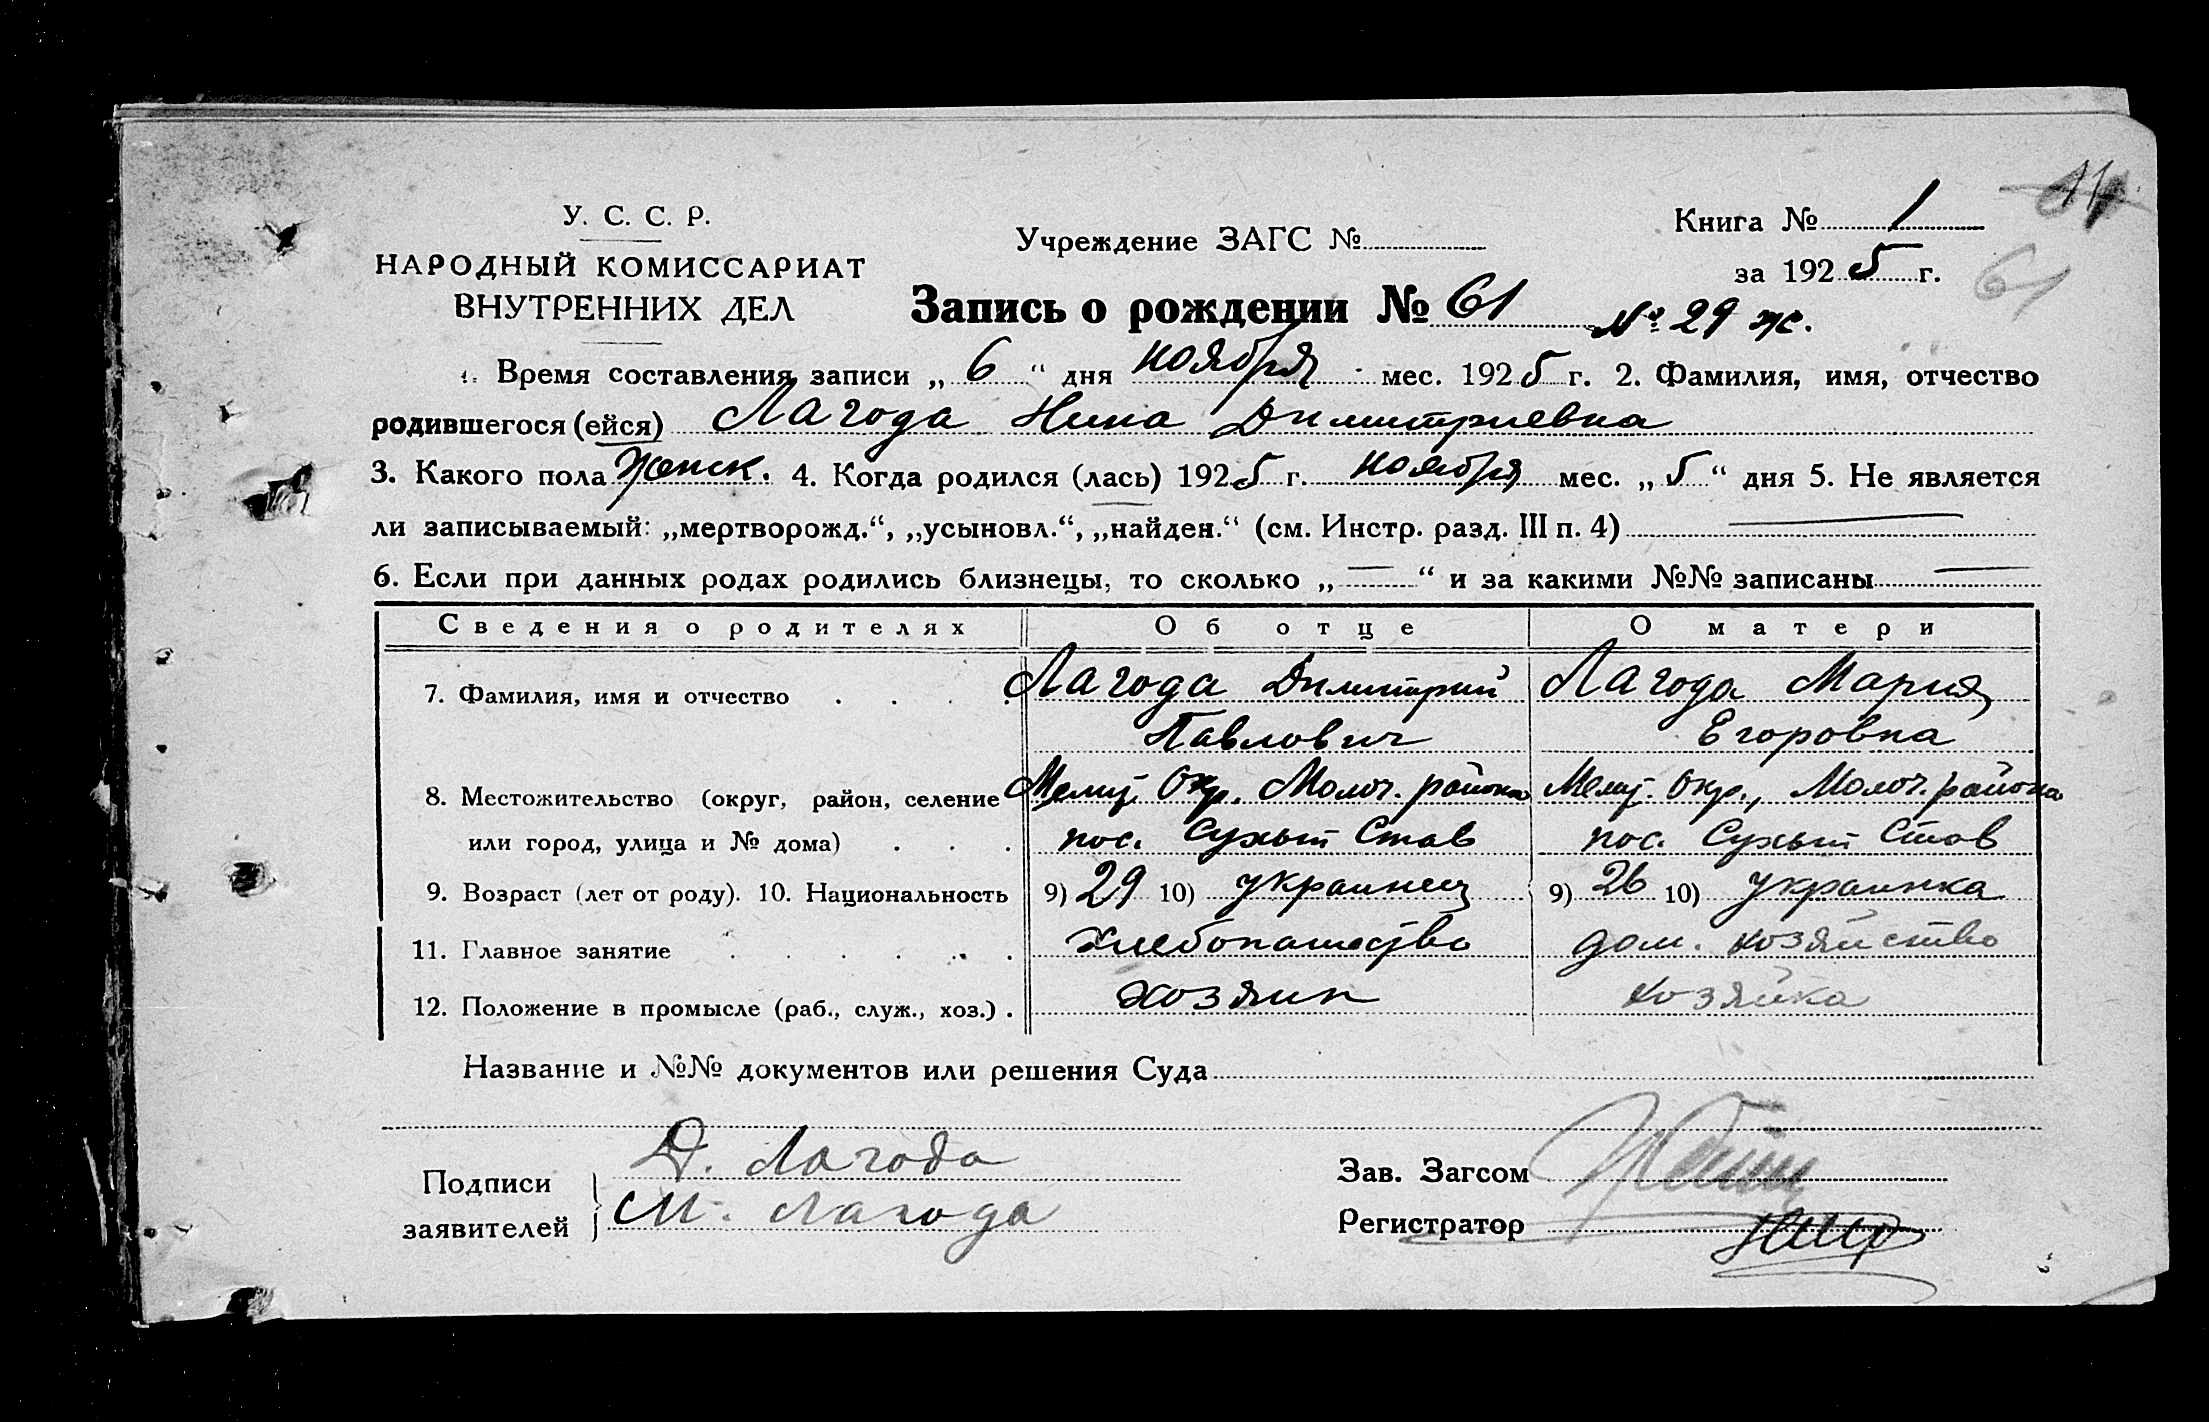 У. С. С. Р.
НАРОДНЫЙ КОМИССАРИАТ
ВНУТРЕННИХ ДЕЛ
Учреждение ЗАГС №
Книга № 1
за 1925 г.
61
Запись о рождении № 61 № 29 ж.
1. Время составления записи „6“ дня ноября мес. 1925 г. 2. Фамилия, имя, отчество
родившегося (ейся) Лагода Нина Димитриевна
3. Какого пола Женск. 4. Когда родился (лась) 1925 г. ноября мес. „5“ дня 5. Не является
ли записываемый: „мертворожд.“, „усыновл.“, „найден.“ (см. Инстр. разд. III п. 4) —
6. Если при данных родах родились близнецы, то сколько „—“ и за какими №№ записаны —
Сведения о родителях Об отце О матери
7. Фамилия, имя и отчество . . . . Лагода Димитрий Лагода Мария
Павлович Егоровна
8. Местожительство (округ, район, селение Мелит. Окр. Молоч. района Мелит. Окр., Молоч. района
или город, улица и № дома) . . . пос. Сухый Став пос. Сухый Став
9. Возраст (лет от роду). 10. Национальность 9) 29 10) украинец 9) 26 10) украинка
11. Главное занятие . . . . . . хлебопашество дом. хозяйство
12. Положение в промысле (раб., служ., хоз.) . хозяин хозяйка
Название и №№ документов или решения Суда
Подписи
заявителей
Д. Лагода
М. Лагода
Зав. Загсом
Регистратор